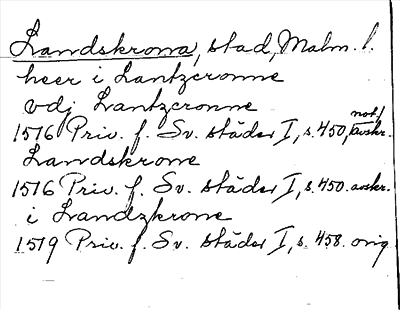 Landskrona, stad, Malm. l.
heer i Lantzcronne
vdj Lantzcronne
1516 Priv. f. Sv. städer I, s. 450, not, avskr.
Landskrone
1516 Priv. f. Sv. städer I, s. 450. avskr.
i Landzkrone
1519 Priv. f. Sv. städer I, s. 458. orig.